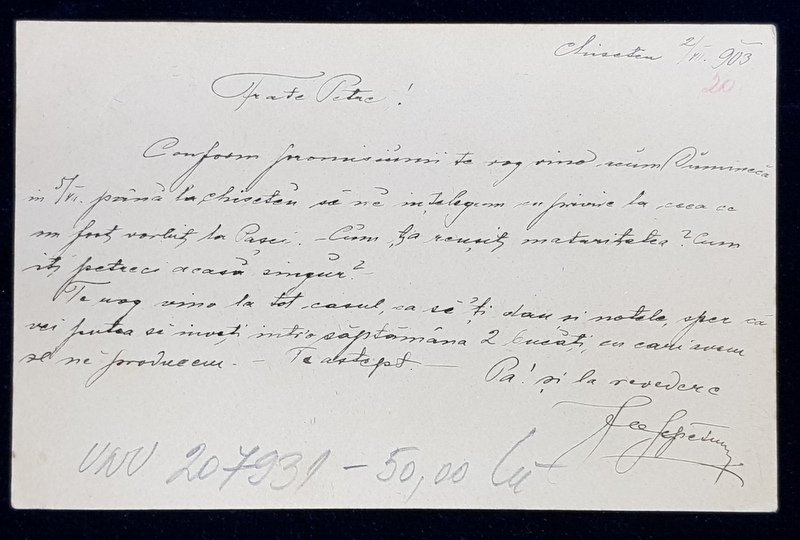 Chisetău 2/VI. 903
20
Frate Petre!
Conform promisiunii te rog vino acum Dumineca
in 5/VI. până la Chisetău să ne ințelegem cu privire la ceea ce
am fost vorbit la Pasci. - Cum ți-a reușit maturitatea? Cum
iți petreci acasă singur? -
Te rog vino la tot casul, ca să ți dau și notele, sper că
vei putea să inveți intro săptămâna 2 bucăți, cu cari avem
să ne producem. - Te astept. -
Pa! și la revedere
UNU 207931 - 50,00 Lei